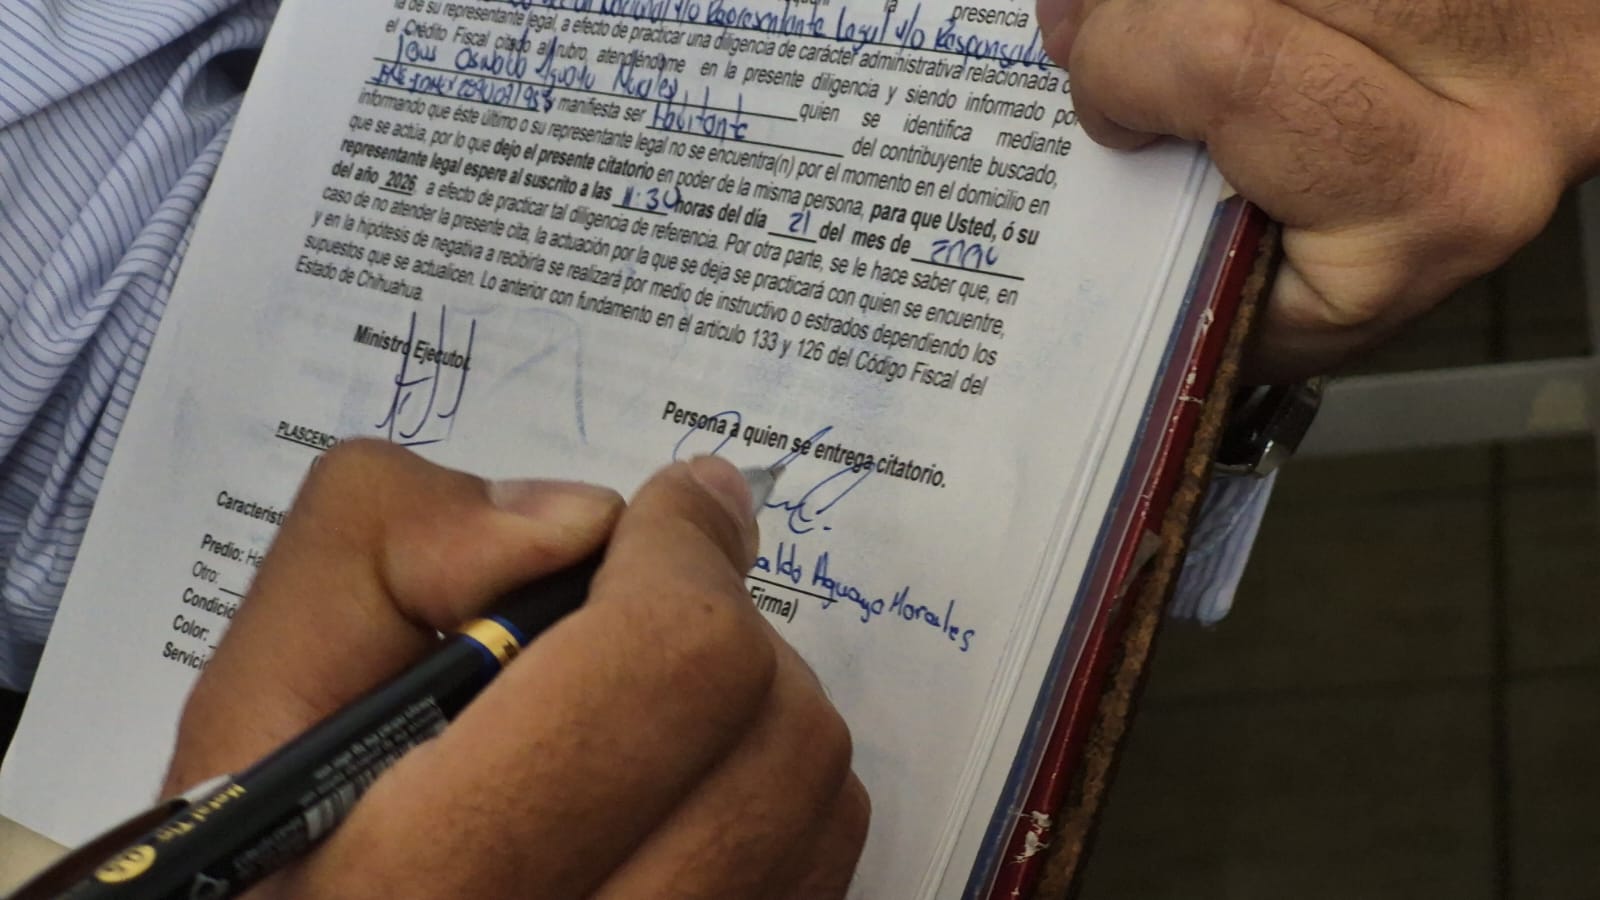 la presencia
Nacional y/o Representante Legal y/o Responsable
ia de su representante legal, a efecto de practicar una diligencia de carácter administrativa relacionada
el Crédito Fiscal citado al rubro, atendiéndome en la presente diligencia y siendo informado por
quien se identifica mediante
manifiesta ser Habitante del contribuyente buscado,
informando que éste último o su representante legal no se encuentra(n) por el momento en el domicilio en
que se actúa, por lo que dejo el presente citatorio en poder de la misma persona, para que Usted, ó su
representante legal espere al suscrito a las 11:30 horas del día 21 del mes de
del año 2026 a efecto de practicar tal diligencia de referencia. Por otra parte, se le hace saber que, en
caso de no atender la presente cita, la actuación por la que se deja se practicará con quien se encuentre,
y en la hipótesis de negativa a recibirla se realizará por medio de instructivo o estrados dependiendo los
supuestos que se actualicen. Lo anterior con fundamento en el artículo 133 y 126 del Código Fiscal del
Estado de Chihuahua.
Ministro Ejecutor
Persona a quien se entrega citatorio.
PLASCENCI
aldo Aguayo Morales
Firma)
Característi
Predio: Ha
Otro:
Condició
Color:
Servici